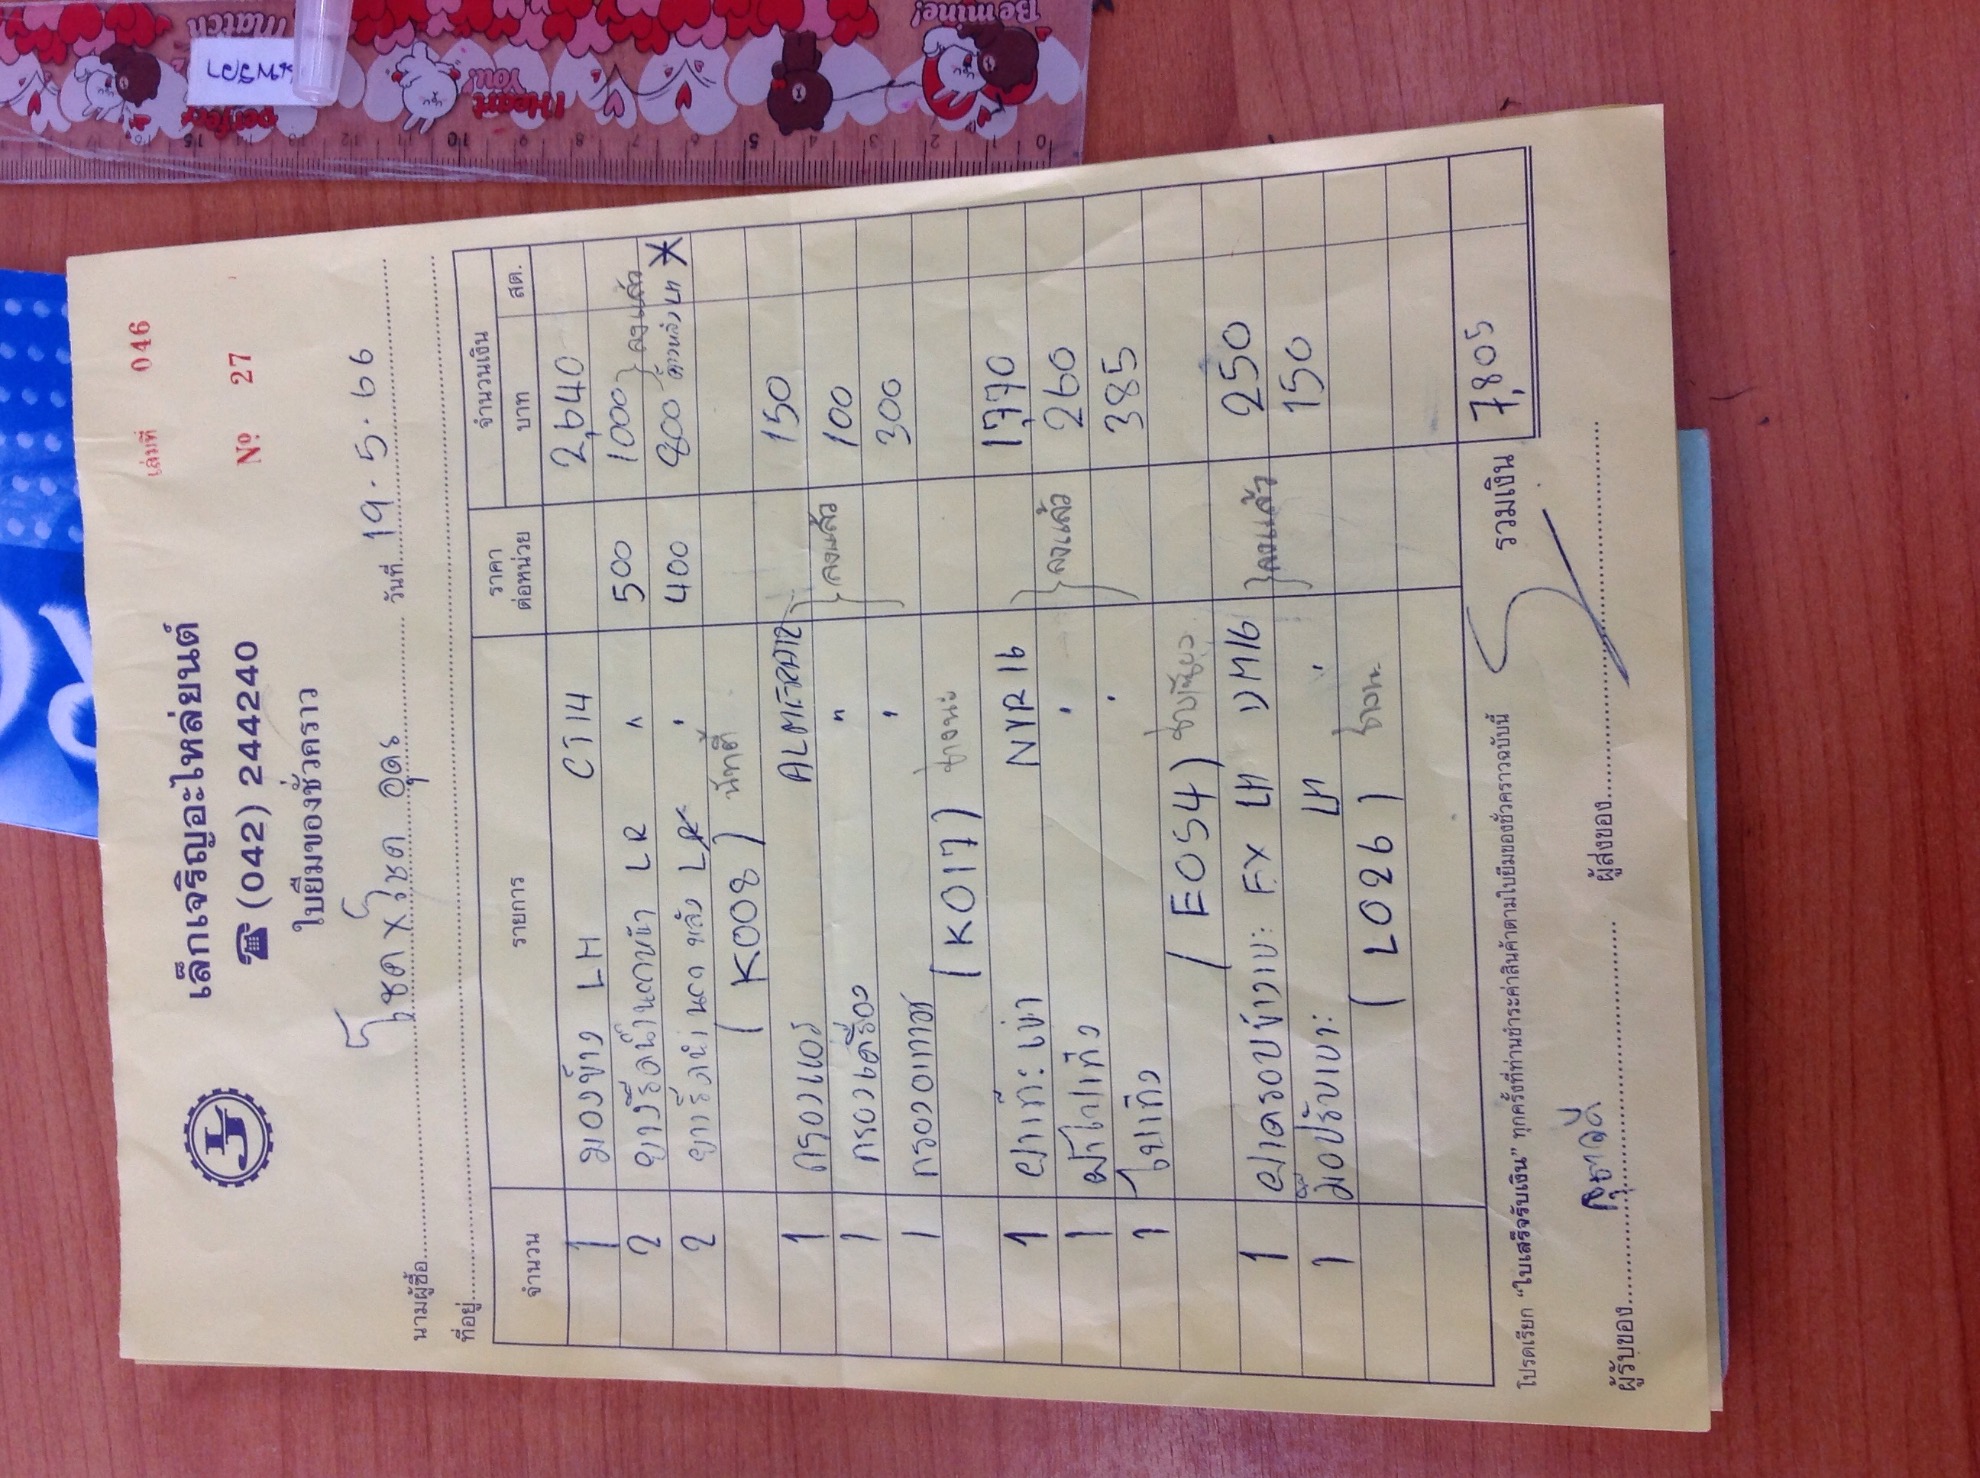 เล่มที่ 046
เล็กเจริญอะไหล่ยนต์
☎ (042) 244240
Nº 27
ใบยืมของชั่วคราว
นามผู้ซื้อ โชค X โชค อุดร วันที่ 19.5.66
ที่อยู่
จำนวน รายการ ราคาต่อหน่วย จำนวนเงิน
บาท สต.
1 มองข้าง LH CT14 2,640
2 ยางรีดน้ำนอกหน้า LR " 500 1000 } ลงแล้ว
2 ยางรีดน้ำนอกหลัง LR ' 400 800
(K008)
1 กรองแอร์ ALMERA12 150
1 กรองเครื่อง " } ลงแล้ว 100
1 กรองอากาศ ' 300
(K017)
1 ฝาเทะเขา NYR16 1,770
1 ผ้าใบเทิง ' } ลงแล้ว 260
1 ใบเทิง ' 385
(E054)
1 ฝาครอบข้างเบาะ FX LH DM16 250
1 มือปรับเบาะ LH ' } ลงแล้ว 150
(L026)
รวมเงิน 7,805
โปรดเรียก "ใบเสร็จรับเงิน" ทุกครั้งที่ท่านชำระค่าสินค้าตามใบยืมของชั่วคราวฉบับนี้
ผู้รับของ ผู้ส่งของ
Match
perfect
I Heart YOU.
Be mine!